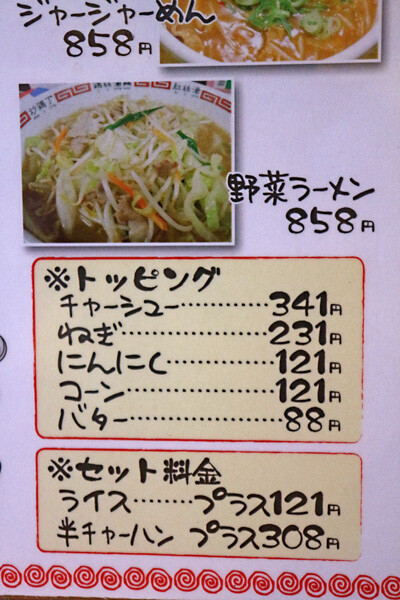 ジャージャーめん
858円
野菜ラーメン
858円
※トッピング
チャーシュー…………341円
ねぎ………………231円
にんにく…………121円
コーン……………121円
バター……………88円
※セット料金
ライス……プラス121円
半チャーハン プラス308円